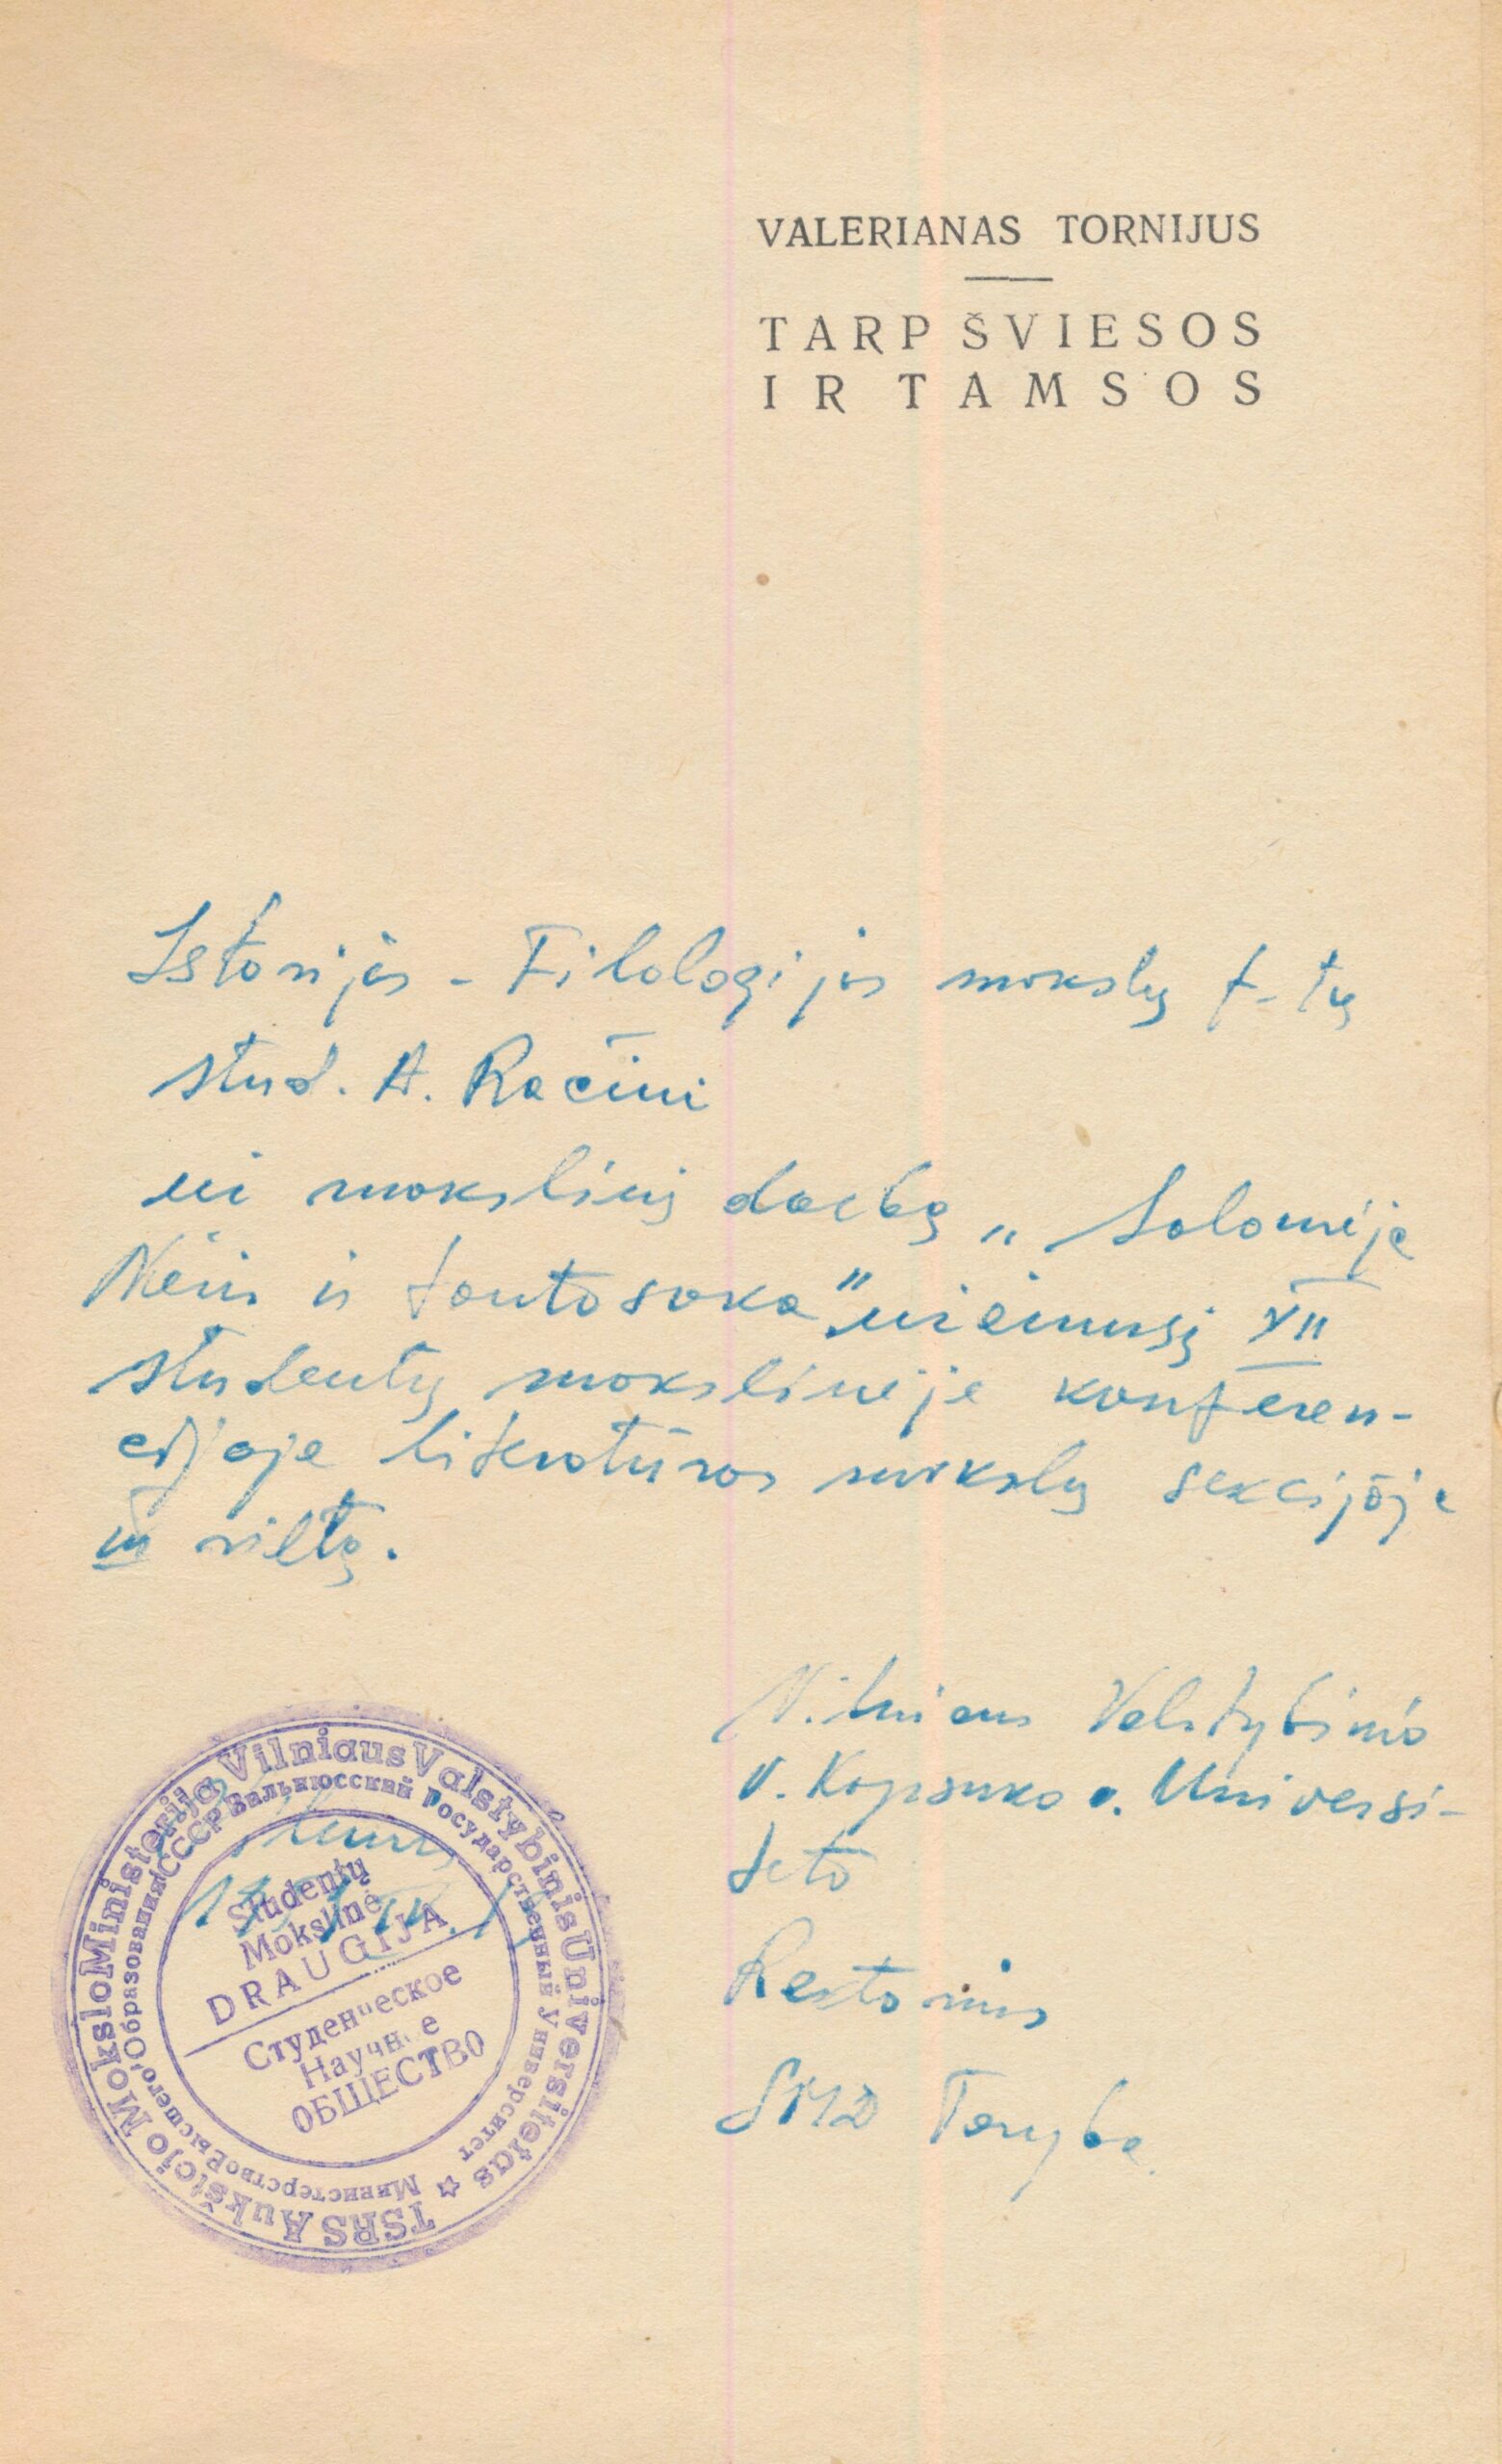 VALERIANAS TORNIJUS
TARP ŠVIESOS
IR TAMSOS
Istorijos - Filologijos mokslų f-tų
stud. A. Račiui
už mokslinį darbą „Salomėja
Nėris ir tautosaka" užėmusį XII
studentų mokslinėje konferen-
cijoje literatūros mokslų sekcijoje
III vietą.
Vilniaus Valstybinio
V. Kapsuko v. Universi-
teto
Rektorius
SMD Taryba
TSRS Aukštojo Mokslo Ministerija Vilniaus Valstybinis Universitetas
Министерство Высшего Образования СССР Вильнюсский Государственный Университет
Studentų
Mokslinė
DRAUGIJA
Студенческое
Научное
ОБЩЕСТВО
Vilnius